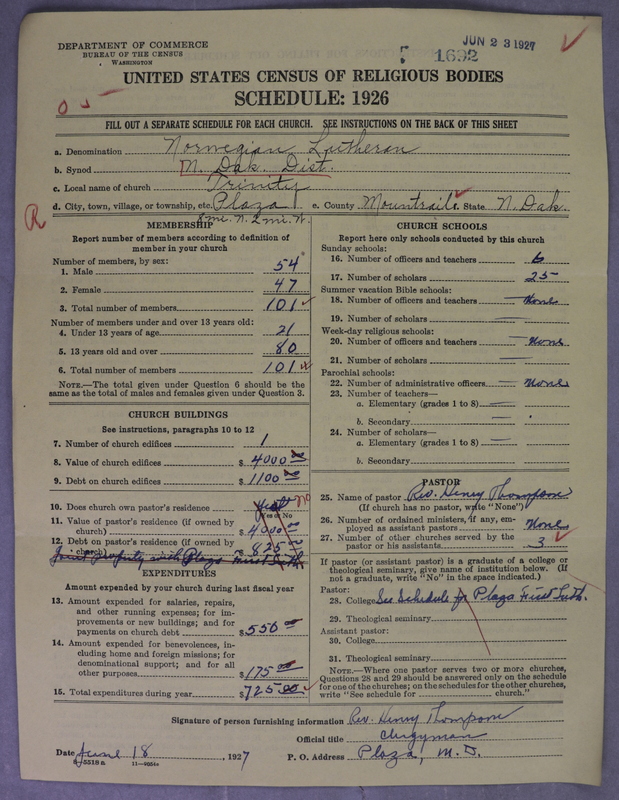 DEPARTMENT OF COMMERCE
BUREAU OF THE CENSUS
WASHINGTON
JUN 23 1927
1692
UNITED STATES CENSUS OF RELIGIOUS BODIES
SCHEDULE: 1926
FILL OUT A SEPARATE SCHEDULE FOR EACH CHURCH. SEE INSTRUCTIONS ON THE BACK OF THIS SHEET
a. Denomination Norwegian Lutheran
b. Synod N. Dak. Dist.
c. Local name of church Trinity
d. City, town, village, or township, etc. Plaza e. County Mountrail e. State N. Dak.
8 mi. N. 2 mi. W.
R
MEMBERSHIP
Report number of members according to definition of
member in your church
Number of members, by sex:
1. Male 54
2. Female 47
3. Total number of members 101
Number of members under and over 13 years old:
4. Under 13 years of age 21
5. 13 years old and over 80
6. Total number of members 101
NOTE.—The total given under Question 6 should be the
same as the total of males and females given under Question 3.
CHURCH BUILDINGS
See instructions, paragraphs 10 to 12
7. Number of church edifices 1
8. Value of church edifices $ 4000 00
9. Debt on church edifices $ 1100 00
10. Does church own pastor's residence no
Yes or No
11. Value of pastor's residence (if owned by
church) $ 4000 00
12. Debt on pastor's residence (if owned by
church) $ 825 00
Joint property with Plaza First Luth.
EXPENDITURES
Amount expended by your church during last fiscal year
13. Amount expended for salaries, repairs,
and other running expenses; for im-
provements or new buildings; and for
payments on church debt $ 550 00
14. Amount expended for benevolences, in-
cluding home and foreign missions; for
denominational support; and for all
other purposes $ 175 00
15. Total expenditures during year $ 725 00
CHURCH SCHOOLS
Report here only schools conducted by this church
Sunday schools:
16. Number of officers and teachers 6
17. Number of scholars 25
Summer vacation Bible schools:
18. Number of officers and teachers None
19. Number of scholars —
Week-day religious schools:
20. Number of officers and teachers None
21. Number of scholars —
Parochial schools:
22. Number of administrative officers None
23. Number of teachers—
a. Elementary (grades 1 to 8) —
b. Secondary —
24. Number of scholars—
a. Elementary (grades 1 to 8) —
b. Secondary
PASTOR
25. Name of pastor Rev. Henry Thompson
(If church has no pastor, write "None")
26. Number of ordained ministers, if any, em-
ployed as assistant pastors None
27. Number of other churches served by the
pastor or his assistants 3
If pastor (or assistant pastor) is a graduate of a college or
theological seminary, give name of institution below. (If
not a graduate, write "No" in the space indicated.)
Pastor:
28. College See Schedule for Plaza First Luth.
29. Theological seminary
Assistant pastor:
30. College
31. Theological seminary
NOTE.—Where one pastor serves two or more churches,
Questions 28 and 29 should be answered only on the schedule
for one of the churches; on the schedules for the other churches,
write "See schedule for church."
Signature of person furnishing information Rev. Henry Thompson
Official title Clergyman
Date June 18, 1927 P. O. Address Plaza, N. D.
8-5518 a